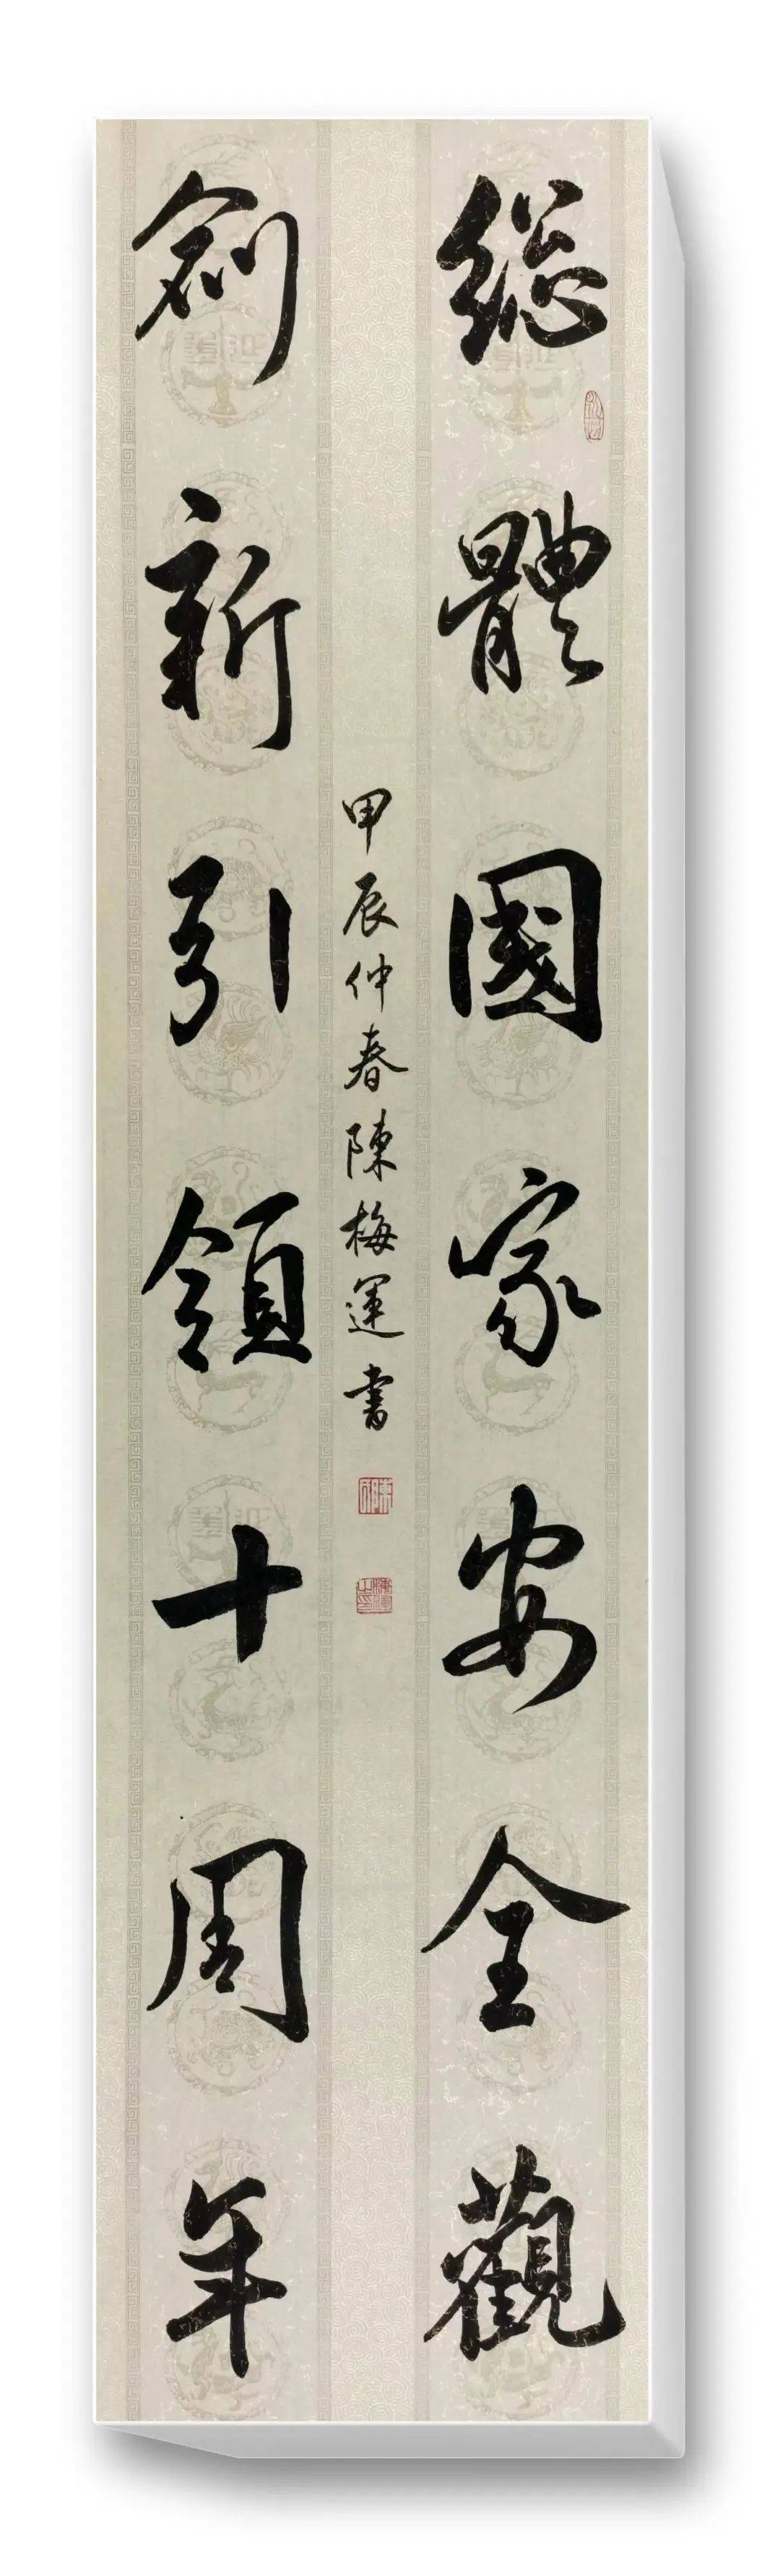 総體國家安全觀
創新引領十周年
甲辰仲春陳梅運書